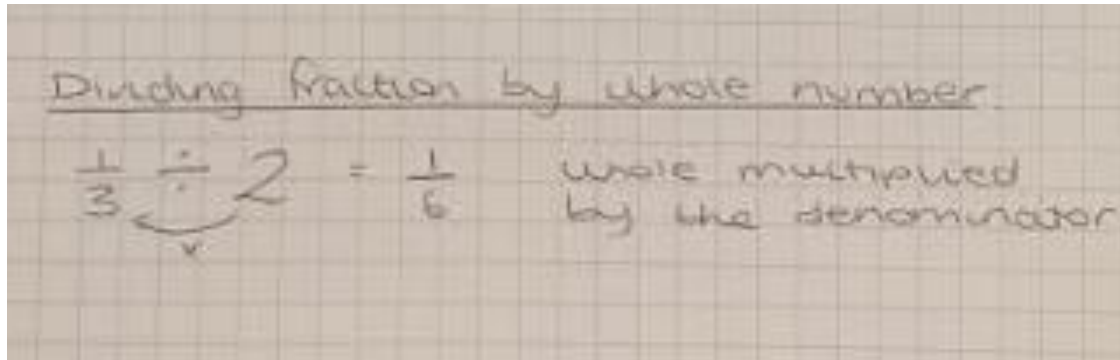 Dividing fraction by whole number.
1/3 ÷ 2 = 1/6 whole multiplied
× by the denominator